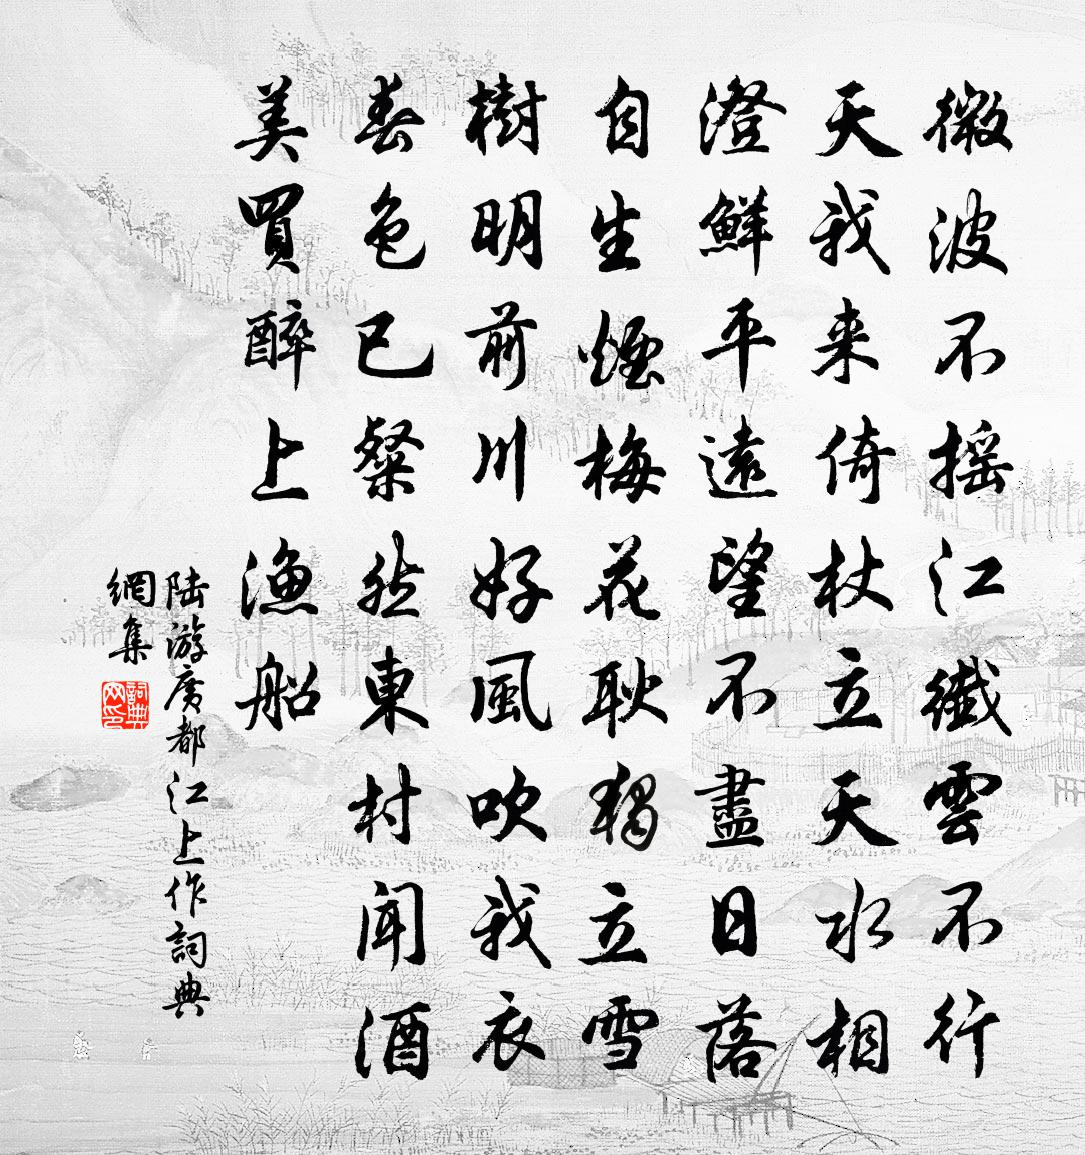 微波不搖江纖雲不行
天我来倚杖立天水相
澄鮮平遠望不盡日落
自生煙梅花耿獨立雪
樹明前川好風吹我衣
春色已粲然東村聞酒
美買醉上漁船
陆游廣都江上作詞典
網集
詞典網印